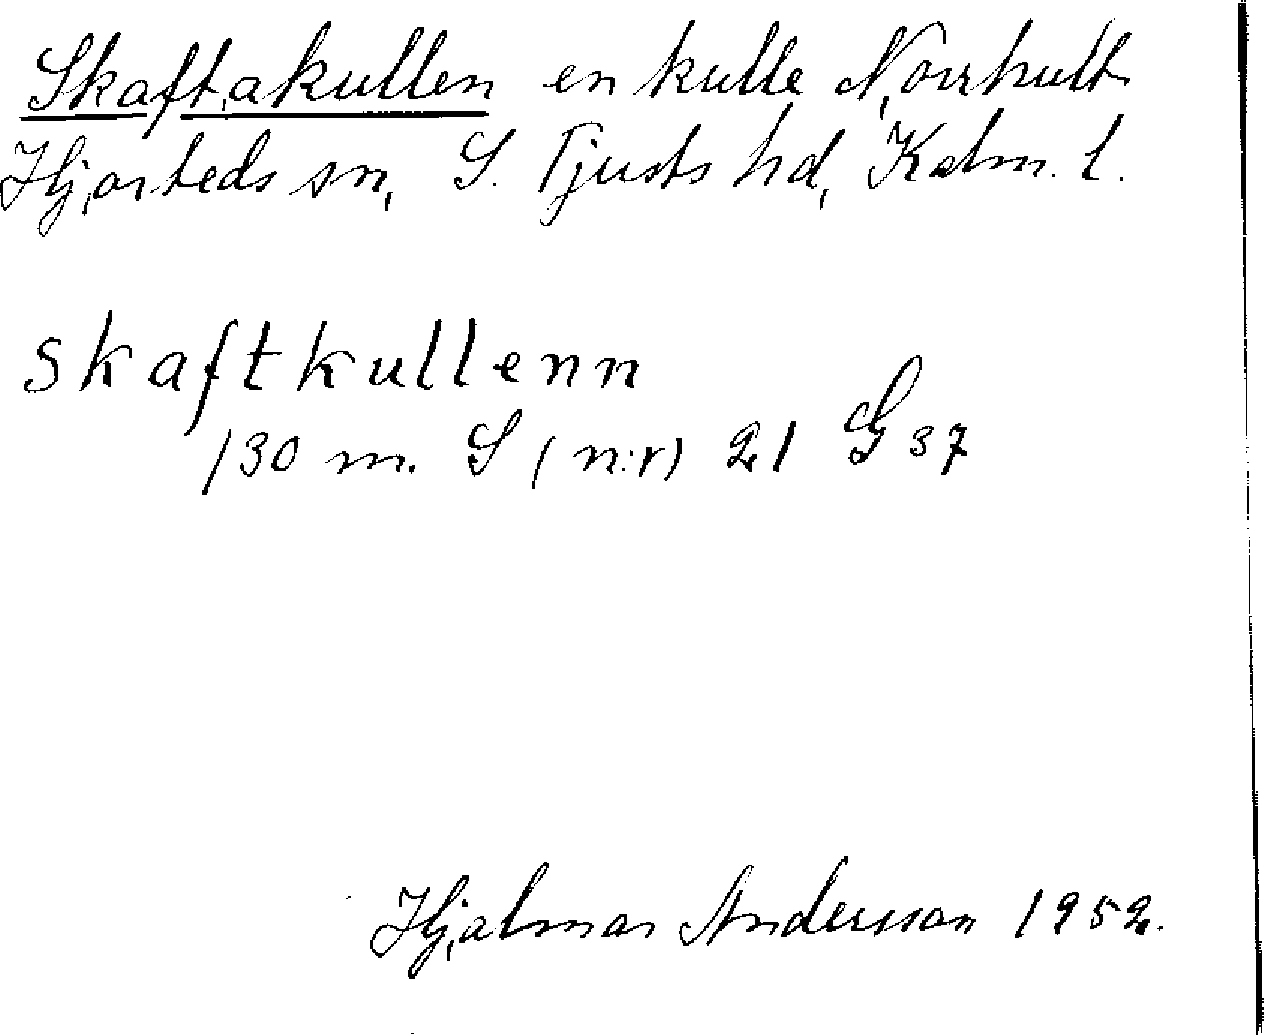 Skaftakullen en kulle Norrhult
Hjorteds sn, S. Tjusts hd, Kalm. l.
skaftkullenn
130 m. S (n:r) 21 G 37
Hjalmar Andersson 1952.